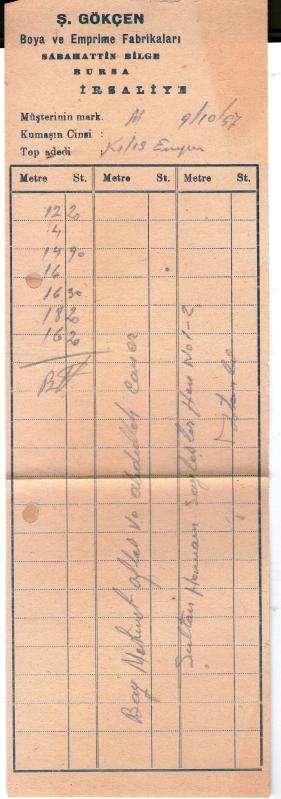 Ş. GÖKÇEN
Boya ve Emprime Fabrikaları
SABAHATTİN BİLGE
BURSA
İRSALİYE
Müşterinin mark. M 9/10/57
Kumaşın Cinsi :
Top adedi
Metre St. Metre St. Metre St.
12 20
4
14 90
16
16 30
18 20
16 20
Bay Mehmet ve abdullah caner
Sultan Hamam Han No 1-2